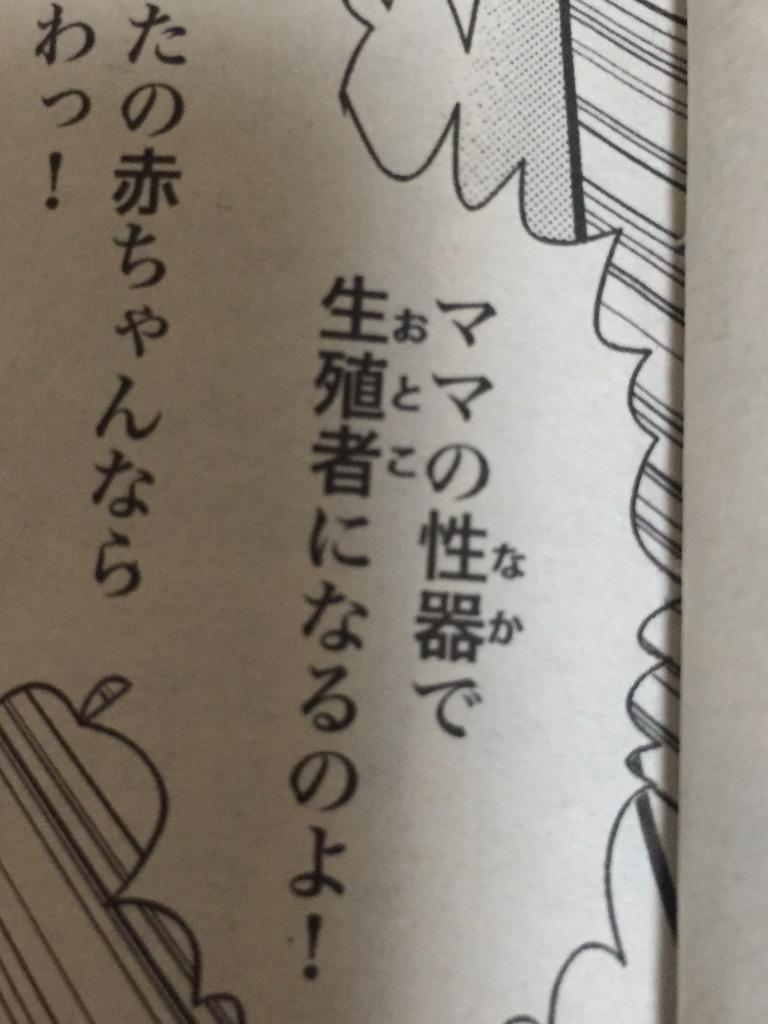 ママの性器で
なか
生殖者になるのよ！
おとこ
たの赤ちゃんなら
わっ！